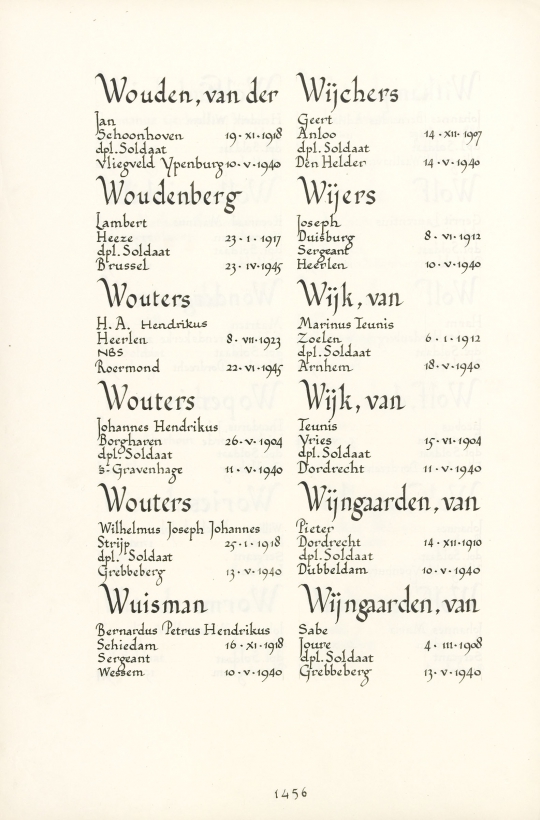 Wouden, van der
Jan
Schoonhoven 19 · XI · 1918
dpl. Soldaat
Vliegveld Ypenburg 10 · V · 1940
Woudenberg
Lambert
Heeze 23 · 1 · 1917
dpl. Soldaat
Brussel 23 · IV · 1945
Wouters
H. A. Hendrikus
Heerlen 8 · VII · 1923
NBS
Roermond 22 · VI · 1945
Wouters
Johannes Hendrikus
Borgharen 26 · V · 1904
dpl. Soldaat
's-Gravenhage 11 · V · 1940
Wouters
Wilhelmus Joseph Johannes
Strijp 25 · 1 · 1918
dpl. Soldaat
Grebbeberg 13 · V · 1940
Wuisman
Bernardus Petrus Hendrikus
Schiedam 16 · XI · 1918
Sergeant
Wessem 10 · V · 1940
Wijchers
Geert
Anloo 14 · XII · 1907
dpl. Soldaat
Den Helder 14 · V · 1940
Wijers
Joseph
Duisburg 8 · VI · 1912
Sergeant
Heerlen 10 · V · 1940
Wijk, van
Marinus Teunis
Zoelen 6 · 1 · 1912
dpl. Soldaat
Arnhem 18 · V · 1940
Wijk, van
Teunis
Vries 15 · VI · 1904
dpl. Soldaat
Dordrecht 11 · V · 1940
Wijngaarden, van
Pieter
Dordrecht 14 · XII · 1910
dpl. Soldaat
Dubbeldam 10 · V · 1940
Wijngaarden, van
Sabe
Joure 4 · III · 1908
dpl. Soldaat
Grebbeberg 13 · V · 1940
1456